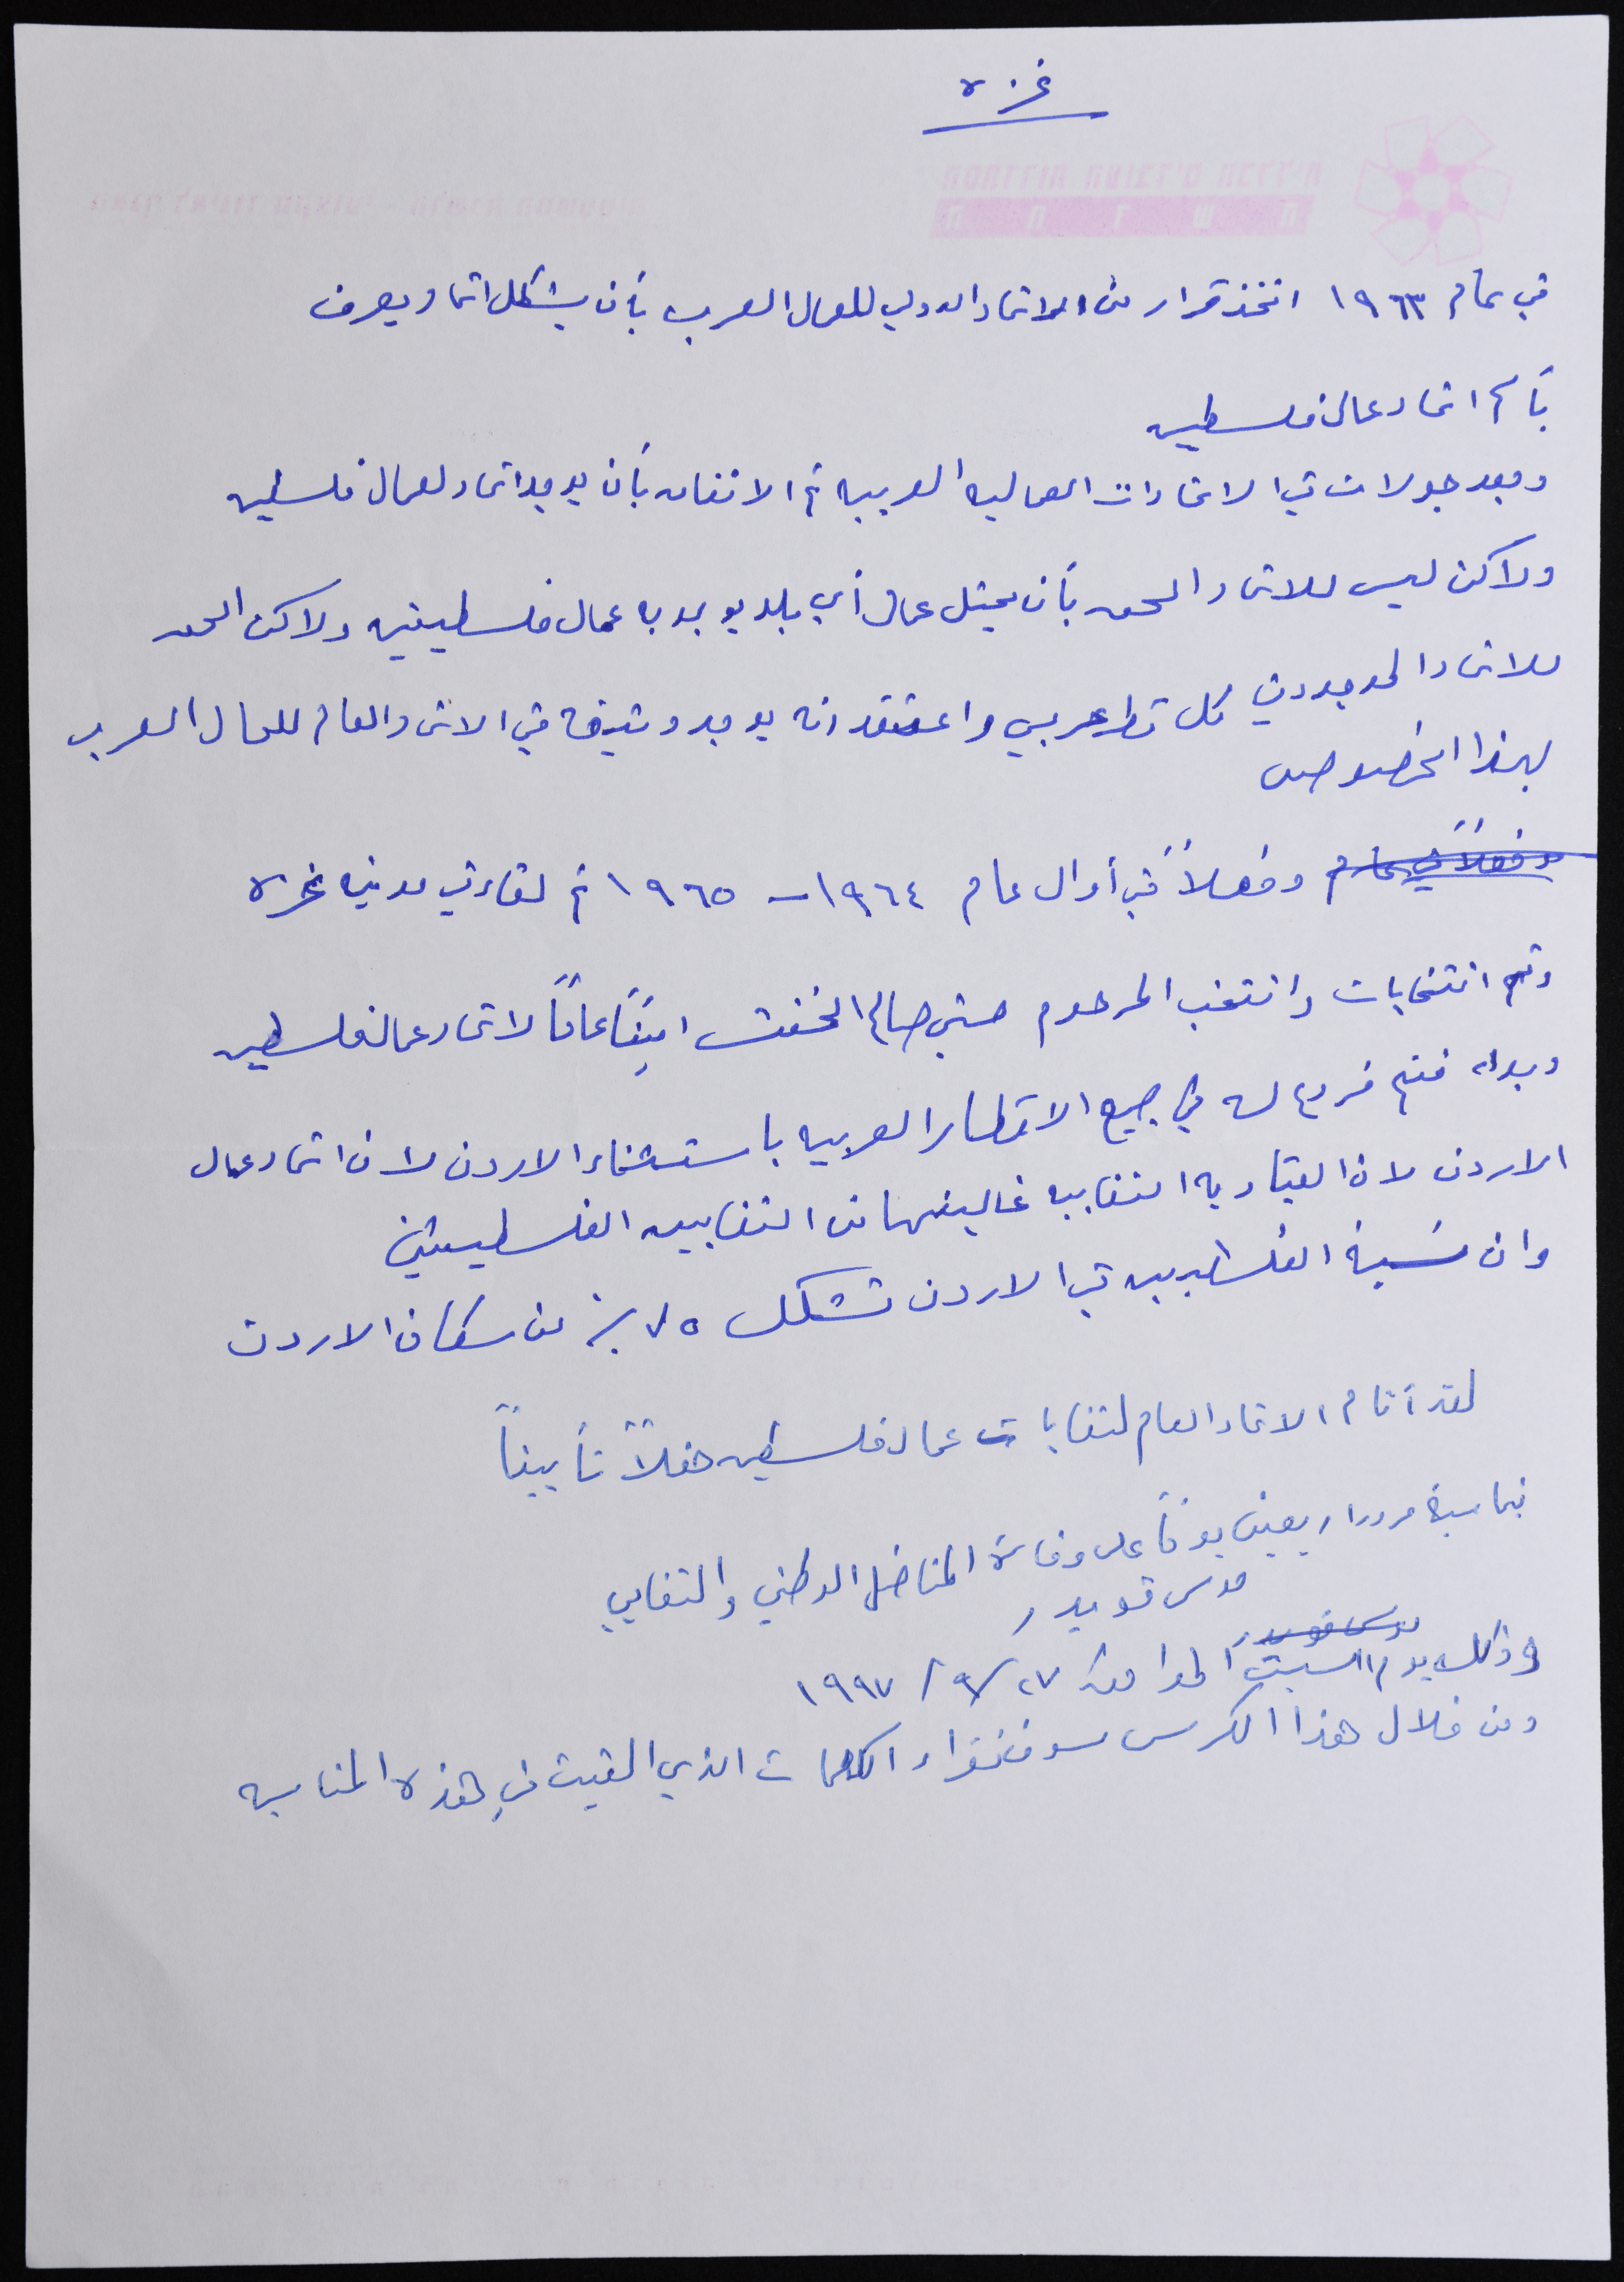 غزه
في عام ١٩٦٣ اتخذ قرار من الاتحاد الدولي للعمال العرب بأن يشكل اتحاد يعرف
بأسم اتحاد عمال فلسطين
وبعد جولات في الاتحادات العماليه العربيه تم الاتفاق بأن يوجد اتحاد لعمال فلسطين
ولاكن ليس للاتحاد الحق بأن يمثل عمال أي بلد يوجد به عمال فلسطينين ولاكن الحق
للاتحاد الموجود في كل قطر عربي واعتقد انه يوجد وثيقة في الاتحاد العام للعمال العرب
بهذا الخصوص
وفعلاً في عام وفعلاً في أوال عام ١٩٦٤ - ١٩٦٥ تم لقاء في مدينة غزه
وتم انتخابات وانتخب المرحوم حسني صالح الخفش اميناً عاماً لاتحاد عمال فلسطين
وبداء فتح فروع له في جميع الاقطار العربيه باستثناء الاردن لان اتحاد عمال
الاردن لان القياديه النقابيه غالبيتها من النقابين الفلسطينين
وان نسبة الفلسطينين في الاردن تشكل ٧٥٪ من سكان الاردن
لقد أقام الاتحاد العام لنقابات عمال فلسطين حفلاً تأبيناً
بمناسبة مرور اربعين يوماً على وفاة المناضل الوطني والنقابي
موسى قويدر
موسى قويدر
وذلك يوم السبت الموافق ٢٧/٩/١٩٩٧
ومن خلال هذا الكرس سوف نقراء الكلمات الذي القيت في هذه المناسبه